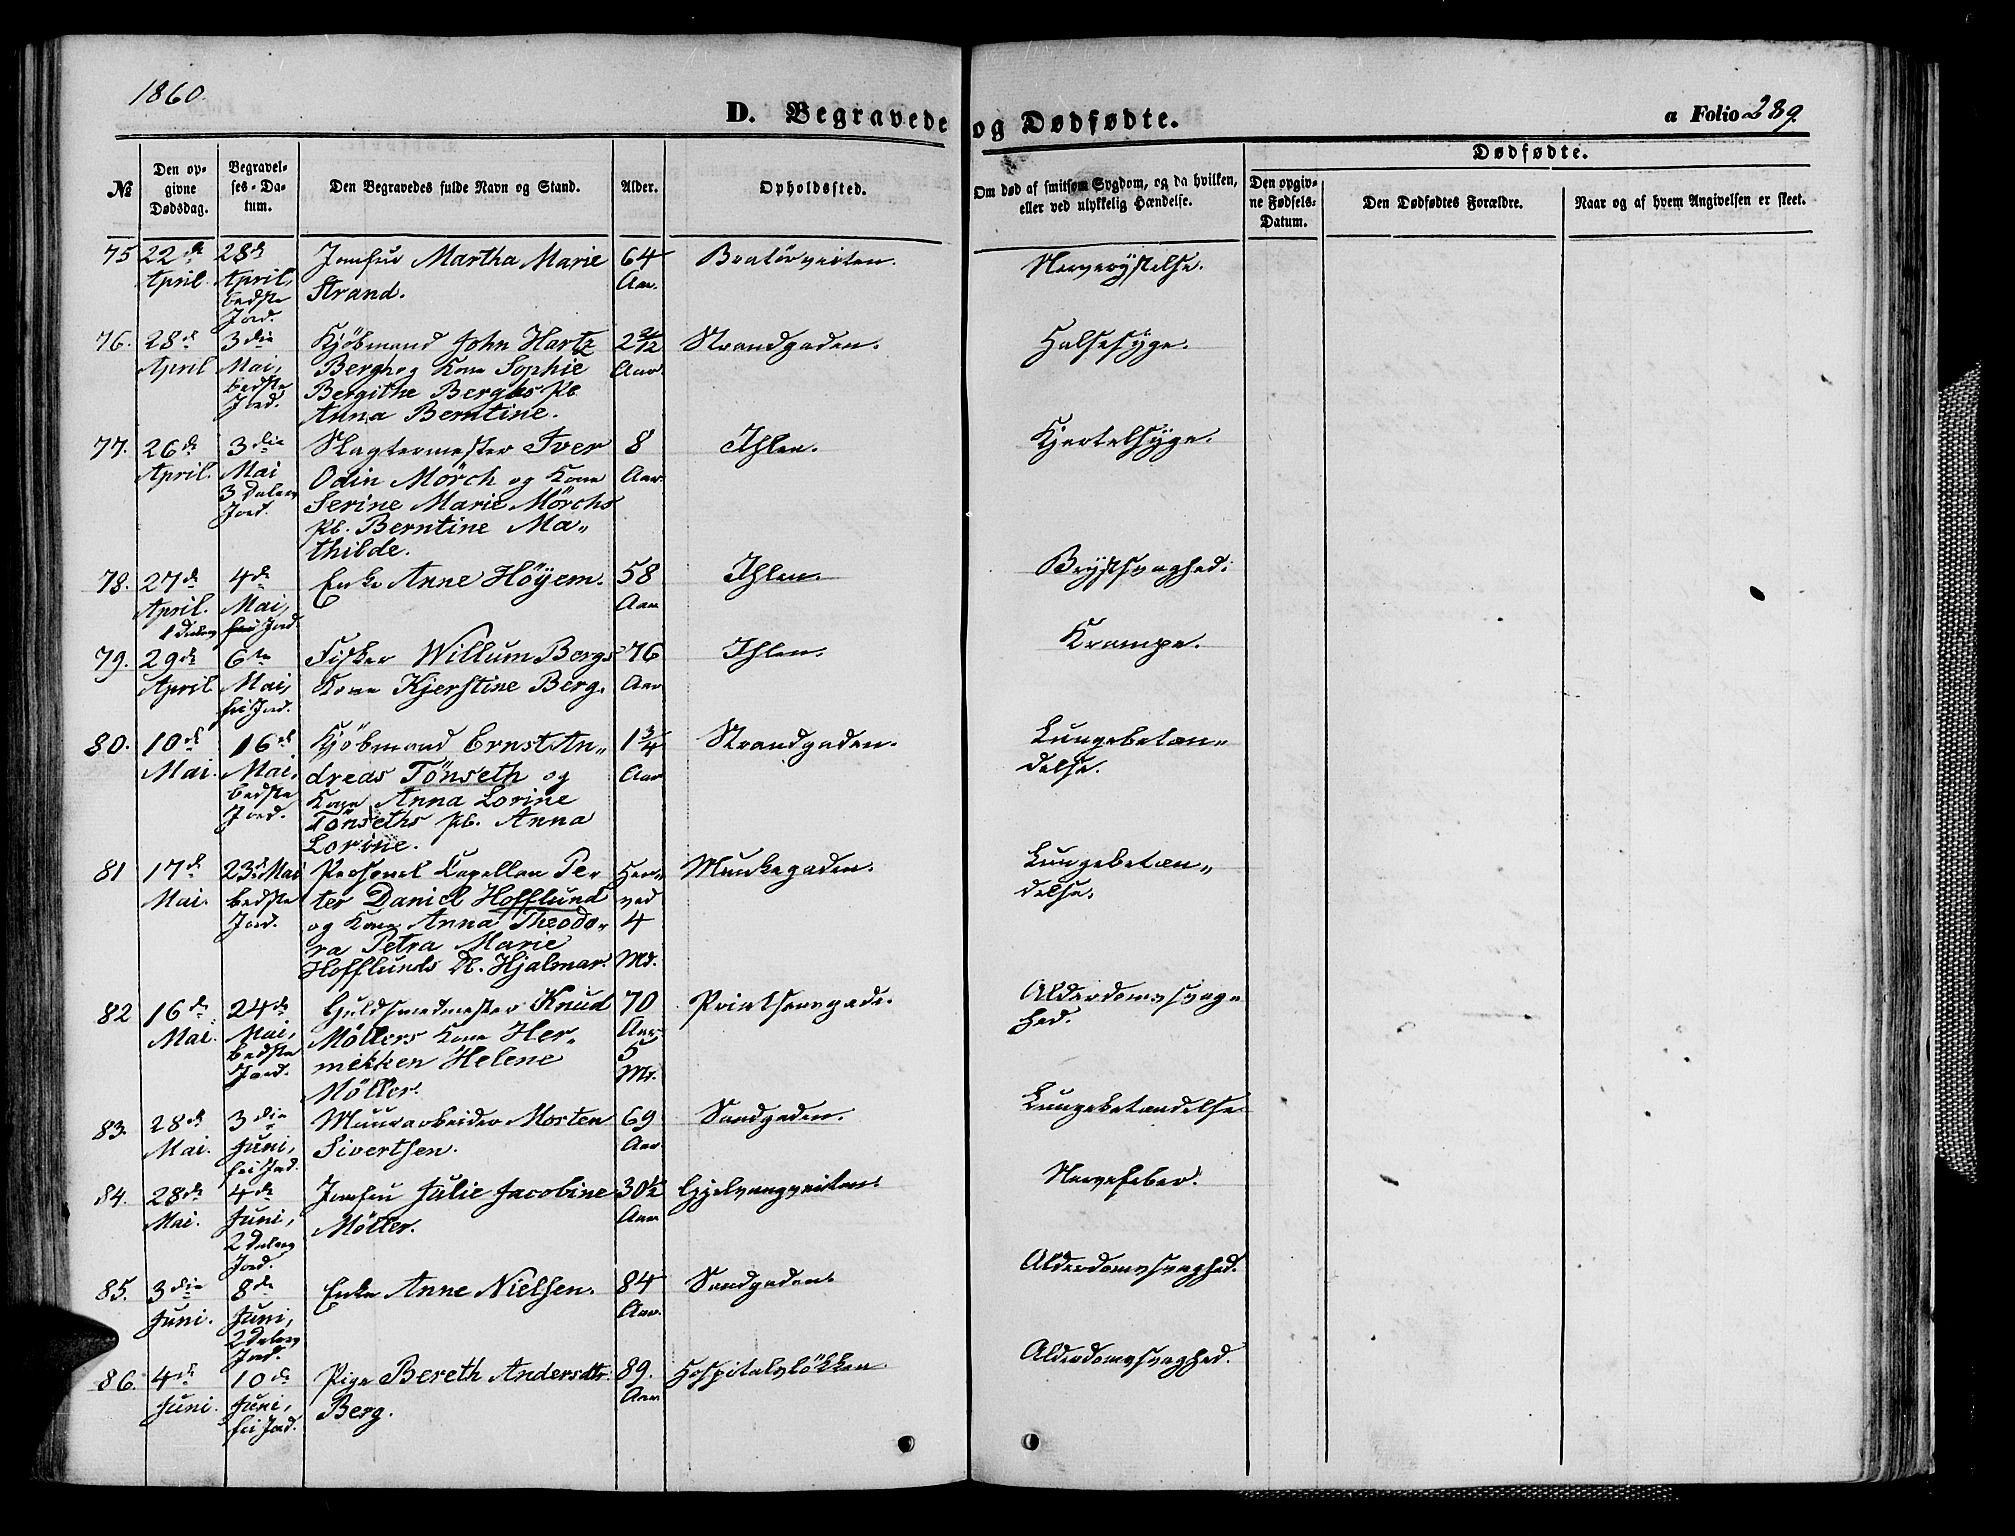 1860.
D. Begravede og Dødfødte.
a Folio 289
№
Den opgivne Dødsdag.
Begravelses-Datum.
Den Begravedes fulde Navn og Stand.
Alder.
Opholdssted.
Om død af smitsom Sygdom, og da hvilken, eller ved ulykkelig Hændelse.
Dødfødte.
Den opgivne Fødsels-Datum.
Den Dødfødtes Forældre.
Naar og af hvem Angivelsen er skeet.
75 22de 28de Jomfru Martha Marie 64 Bratörveiten. Nerverystelse.
April. April, Strand. Aar.
bedste
Jord.
76. 28de 3die Kjöbmand John Hartz 2 2/12 Strandgaden. Halsesyge.
April Mai, Berg og Kone Sophie Aar.
bedste Bergithe Bergs Pb.
Jord. Anna Berntine.
77. 26de 3die Slagtermester Iver 8 Ihlen. Kjertelsyge.
April. Mai Odin Mörch og Kone Aar
3 Dalers Serine Marie Mörchs
Jord. Pb. Berntine Ma„
thilde.
78. 27de 4de Enke Anne Höyem. 58 Ihlen. Brystsvaghed.
April. Mai, Aar
1 Dalers fri Jord.
79. 29de 6te Fisker Willum Bergs 76 Ihlen. Krampe.
April Mai, Kone Kjerstine Berg. Aar
fri Jord.
80. 10de 16de Kjöbmand Ernst An„ 1 3/4 Strandgaden. Lungebetæn„
Mai. Mai. dreas Tönseth og Aar delse.
bedste Kone Anna Lorine
Jord. Tönseths Pb. Anna
Lorine.
81 17de 23de Mai Personel Capellan Pe- Hen„ Munkegaden. Lungebetæn„
Mai. bedste ter Daniel Hofflund ved delse.
Jord. og Kone Anna Theodo„ 4
ra Petra Marie
Hofflunds Db. Hjalmar. Md.
82 16de 24de Guldsmedmester Knud 70 Prindsensgade. Alderdomssvag„
Mai. Mai, Möllers Kone Her„ Aar hed.
bedste mekken Helene 5
Jord. Möller. Md.
83. 28de 3die Muurarbeider Morten 69 Sandgaden. Lungebetændelse
Mai. Juni, Sivertsen. Aar
fri Jord.
84. 28de 4de Jomfru Julie Jacobine 30 1/2 Gjelvangveiten. Nervefeber.
Mai. Juni, Möller. Aar
2 Dalers
Jord.
85. 3die 8de Enke Anne Nielsen. 84 Sandgaden. Alderdomssvaghed.
Juni. Juni, Aar.
2 Dalers
Jord.
86. 4de 10de Pige Bereth Andersdtr. 89. Hospitalslökken. Alderdomssvaghed.
Juni. Juni, Berg. Aar
fri Jord.